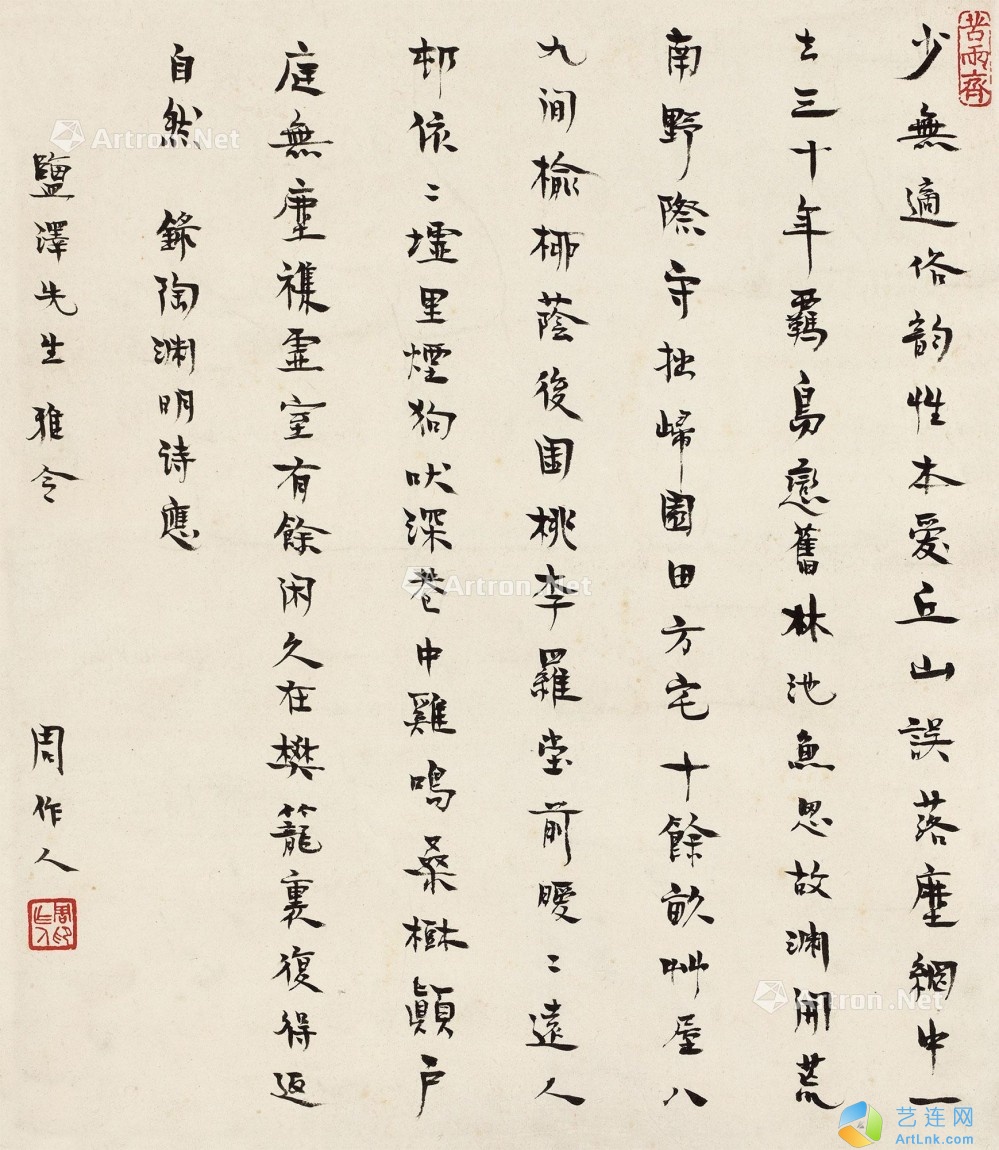 苦雨齋
少無適俗韵性本愛丘山誤落塵網中一
去三十年羈鳥戀舊林池魚思故渊開荒
南野際守拙歸園田方宅十餘畝艸屋八
九间榆柳蔭後園桃李羅堂前曖〻遠人
邨依〻墟里煙狗吠深巷中雞鳴桑樹顛戶
庭無塵襍虛室有餘闲久在樊籠裏復得返
自然 錄陶渊明诗應
鹽澤先生 雅令
周作人
周作人印
Artron.Net
Artron.Net
Artron.Net
艺连网
ArtLnk.com